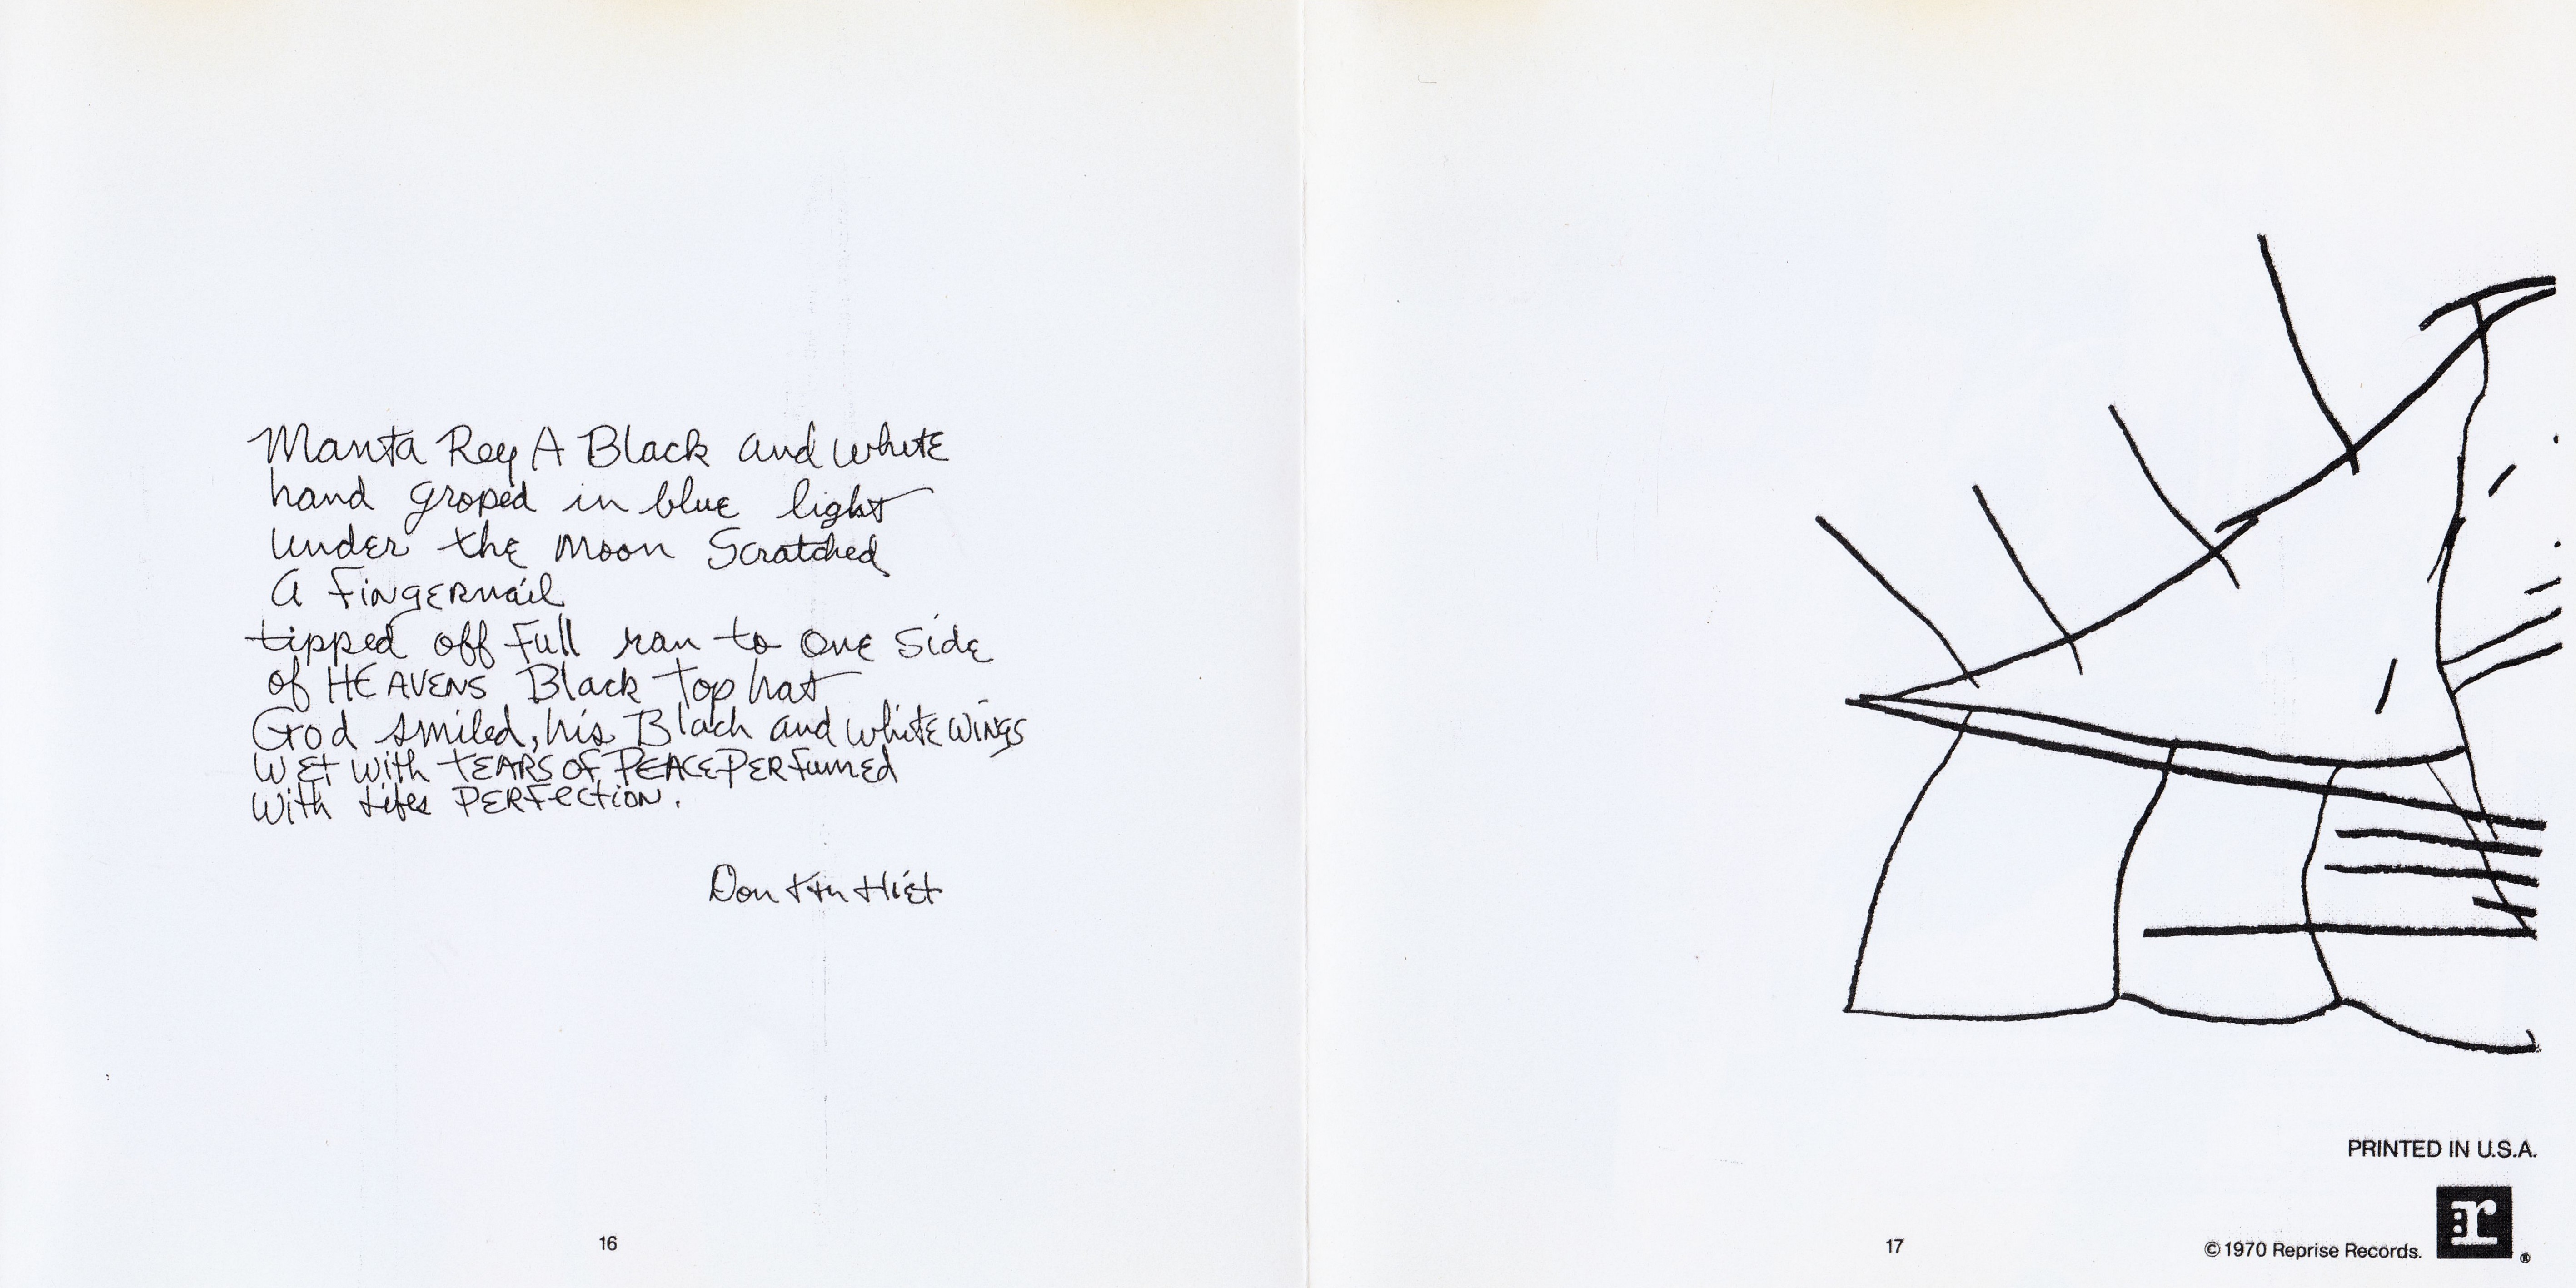 Manta Rey A Black and white
hand groped in blue light
under the Moon Scratched
a fingernail
tipped off full ran to one side
of HEAVENS Black top hat
God smiled, his Black and white wings
wet with tears of PEACE PERfumed
with lifes PERFection.
Don
16
PRINTED IN U.S.A.
r
17
©1970 Reprise Records.
®